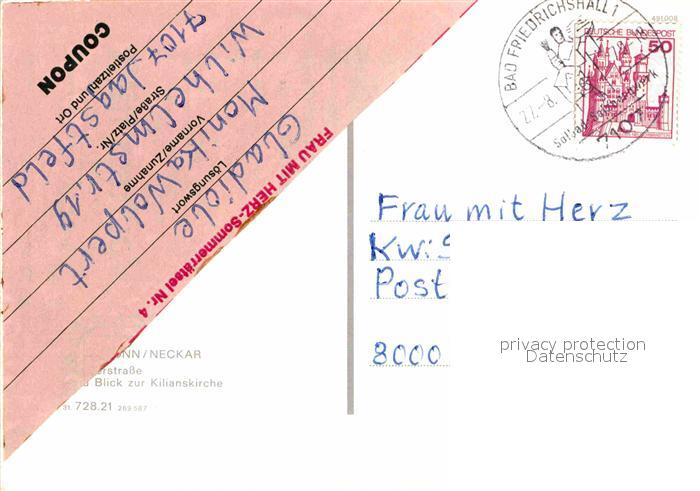 COUPON
FRAU MIT HERZ-Sommerrätsel Nr. 4
Gladiole
Lösungswort
Monika Wolpert
Vorname/Zuname
Wilhelmstr. 19
Straße/Platz/Nr.
7107 Jagstfeld
Postleitzahl und Ort
NN/NECKAR
erstraße
Blick zur Kilianskirche
31. 728.21 269 587
491.008
DEUTSCHE BUNDESPOST
50
BAD FRIEDRICHSHALL 1
27.-8.
7107
Frau mit Herz
Kwis
Post
8000
privacy protection
Datenschutz